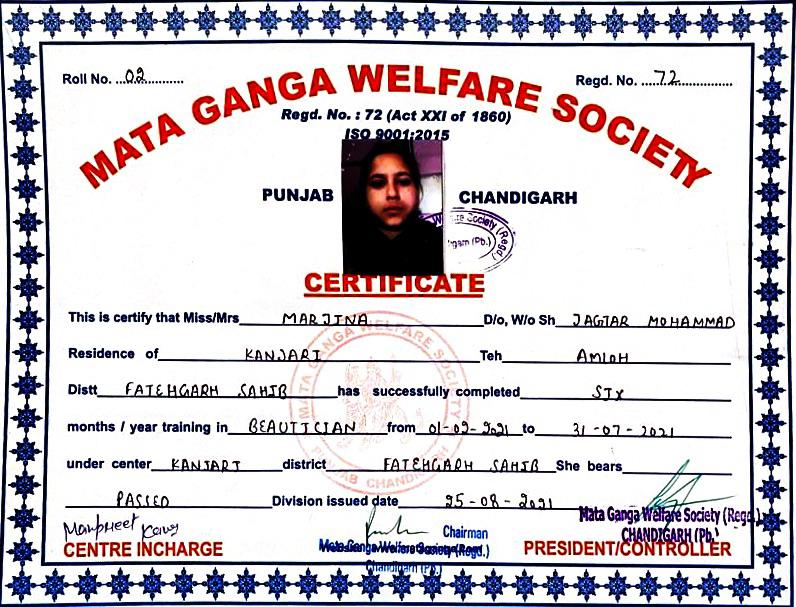 Roll No. ...02...............
Regd. No. ...72...............
MATA GANGA WELFARE SOCIETY
Regd. No. : 72 (Act XXI of 1860)
ISO 9001:2015
PUNJAB CHANDIGARH
Welfare Society (Regd.)
CERTIFICATE
This is certify that Miss/Mrs MARJINA D/o, W/o Sh JAGTAR MOHAMMAD
Residence of KANJARI Teh AMLOH
Distt FATEHGARH SAHIB has successfully completed SIX
months / year training in BEAUTICIAN from 01-02-2021 to 31-07-2021
under center KANJARI district FATEHGARH SAHIB She bears
PASSED Division issued date 25-08-2021
MATA GANGA WELFARE SOCIETY
PUNJAB CHANDIGARH
Manpreet Kaur
CENTRE INCHARGE
Chairman
Mata Ganga Welfare Society (Regd.)
Chandigarh (Pb.)
Mata Ganga Welfare Society (Regd.)
CHANDIGARH (Pb.)
PRESIDENT/CONTROLLER